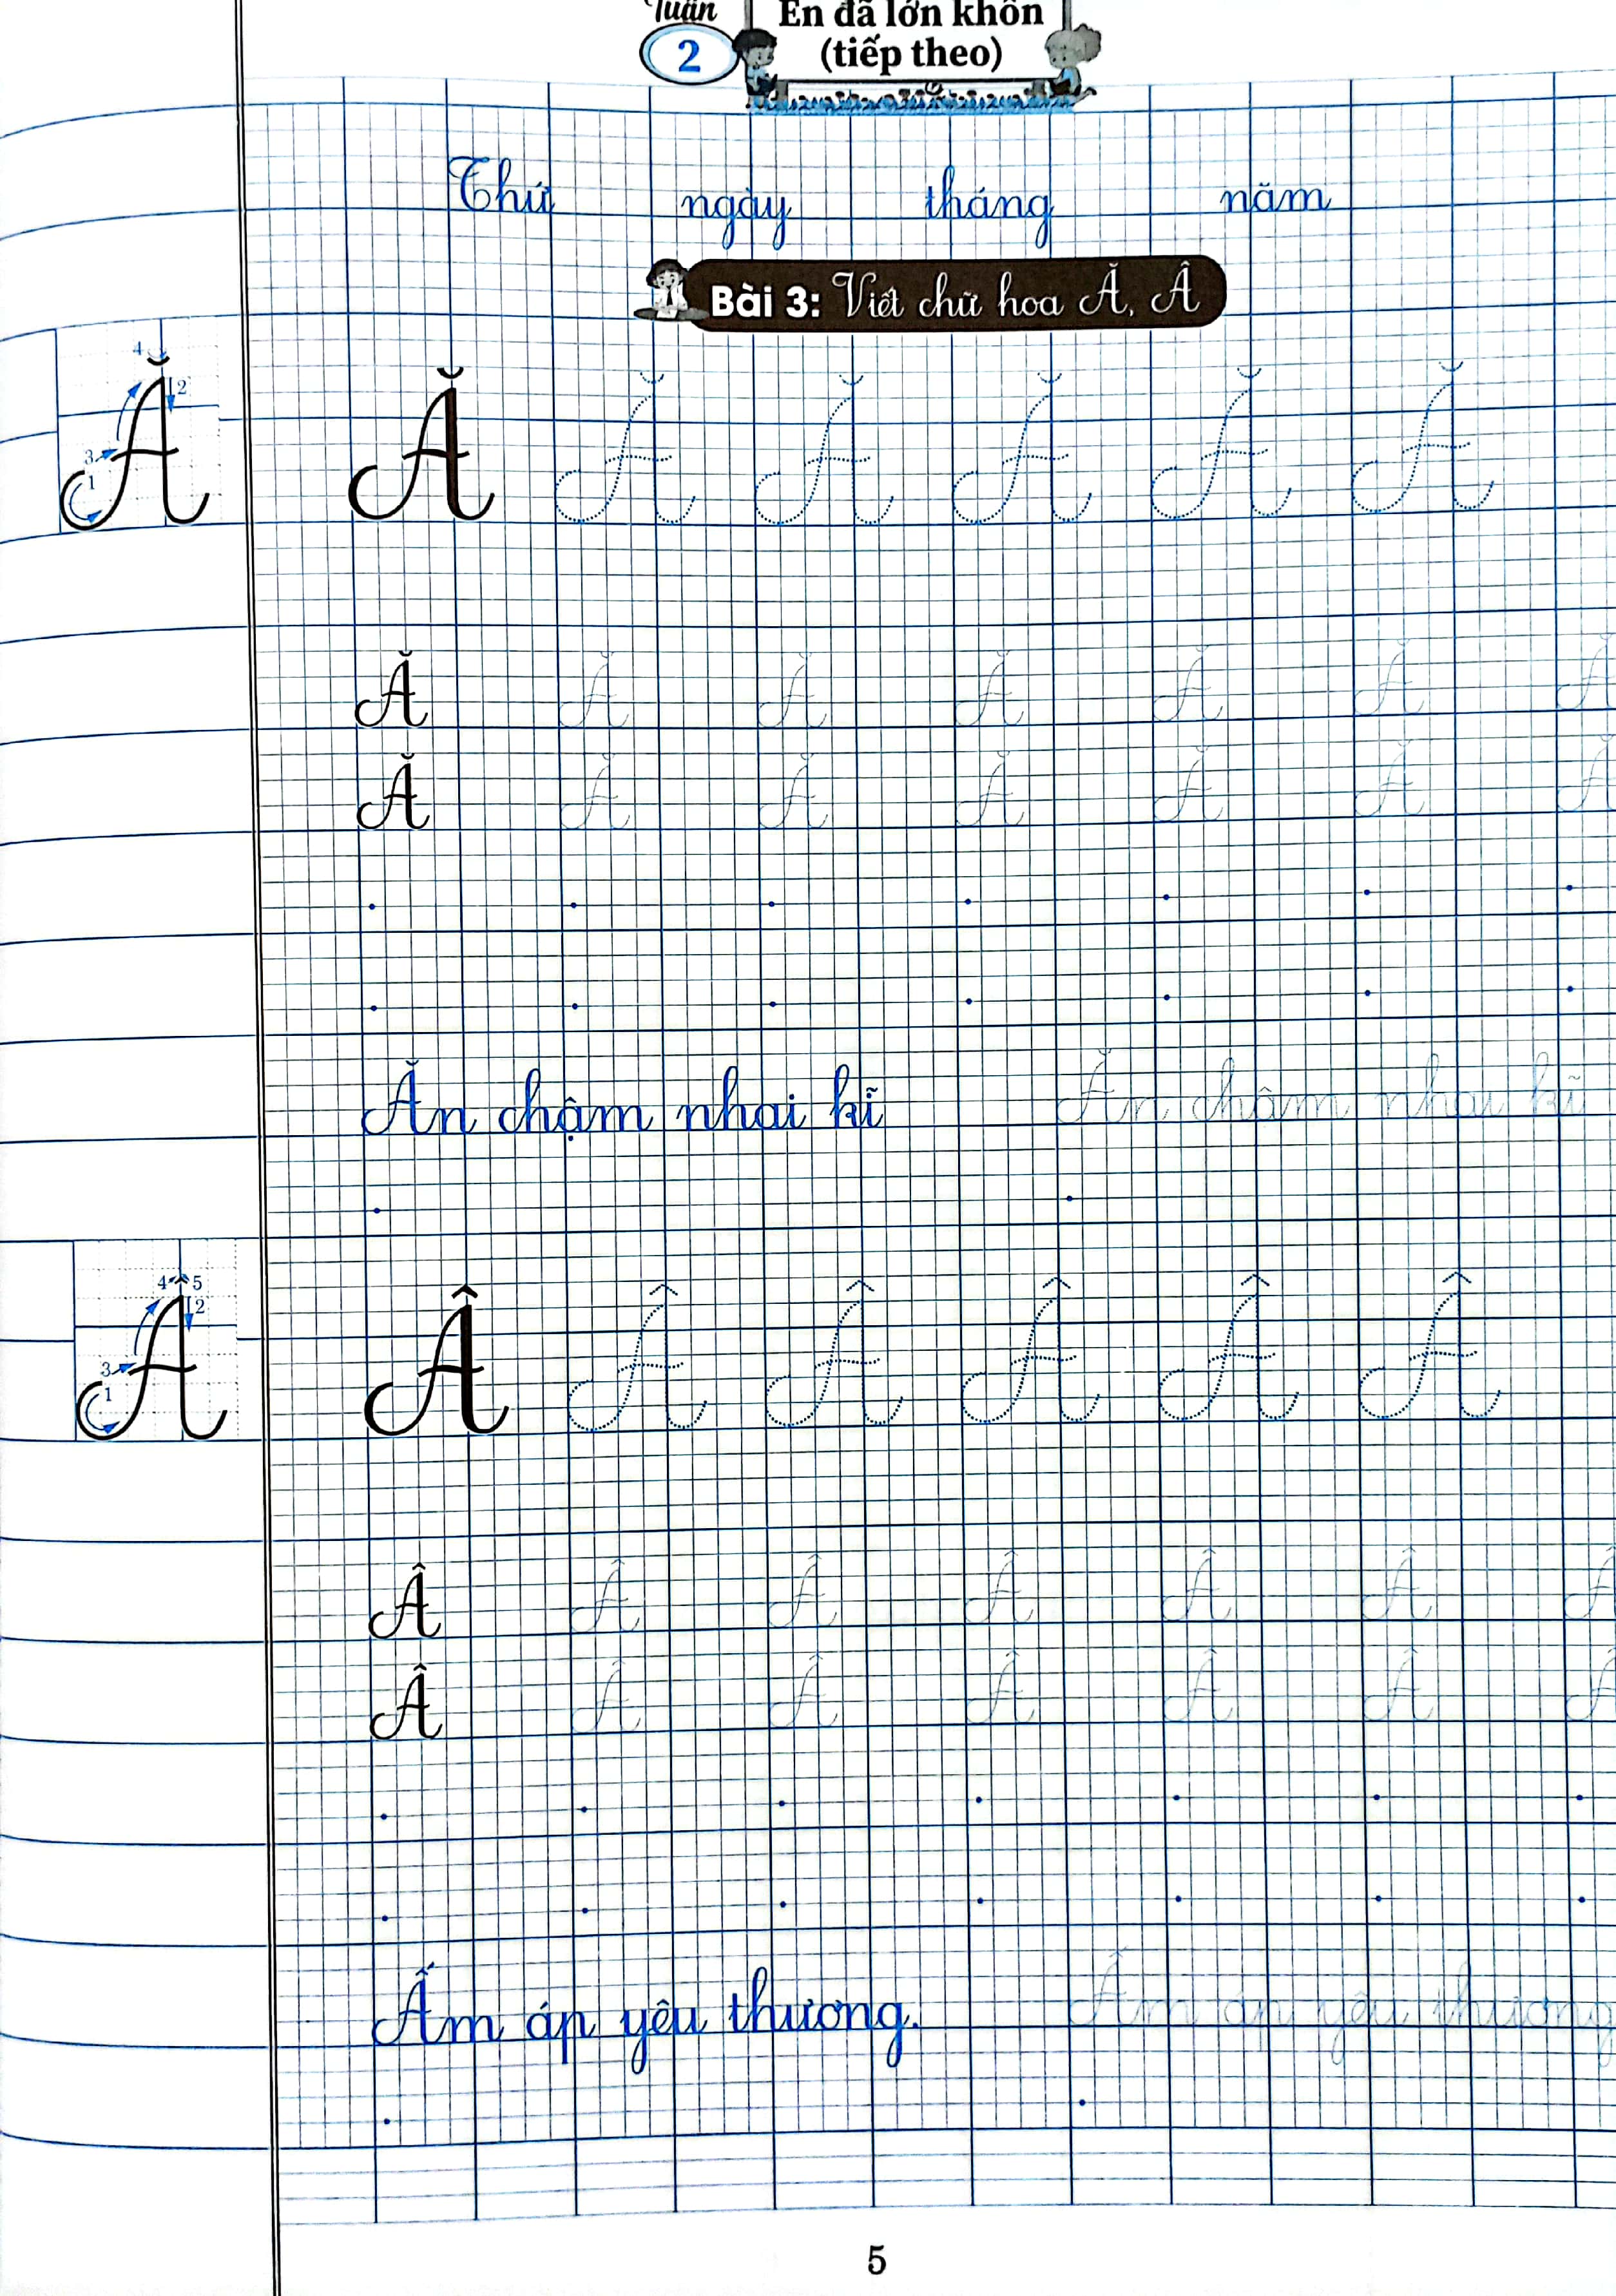 Tuần
2
Em đã lớn khôn
(tiếp theo)
Thứ ngày tháng năm
Bài 3: Viết chữ hoa Ă, Â
4 2 3 1 Ă
Ă Ă Ă Ă Ă Ă
Ă Ă Ă Ă Ă Ă Ă
Ă Ă Ă Ă Ă Ă Ă
Ăn chậm nhai kĩ Ăn chậm nhai kĩ
4 5 2 3 1 Â
Â Â Â Â Â Â
Â Â Â Â Â Â Â
Â Â Â Â Â Â Â
Ấm áp yêu thương. Ấm áp yêu thương
5